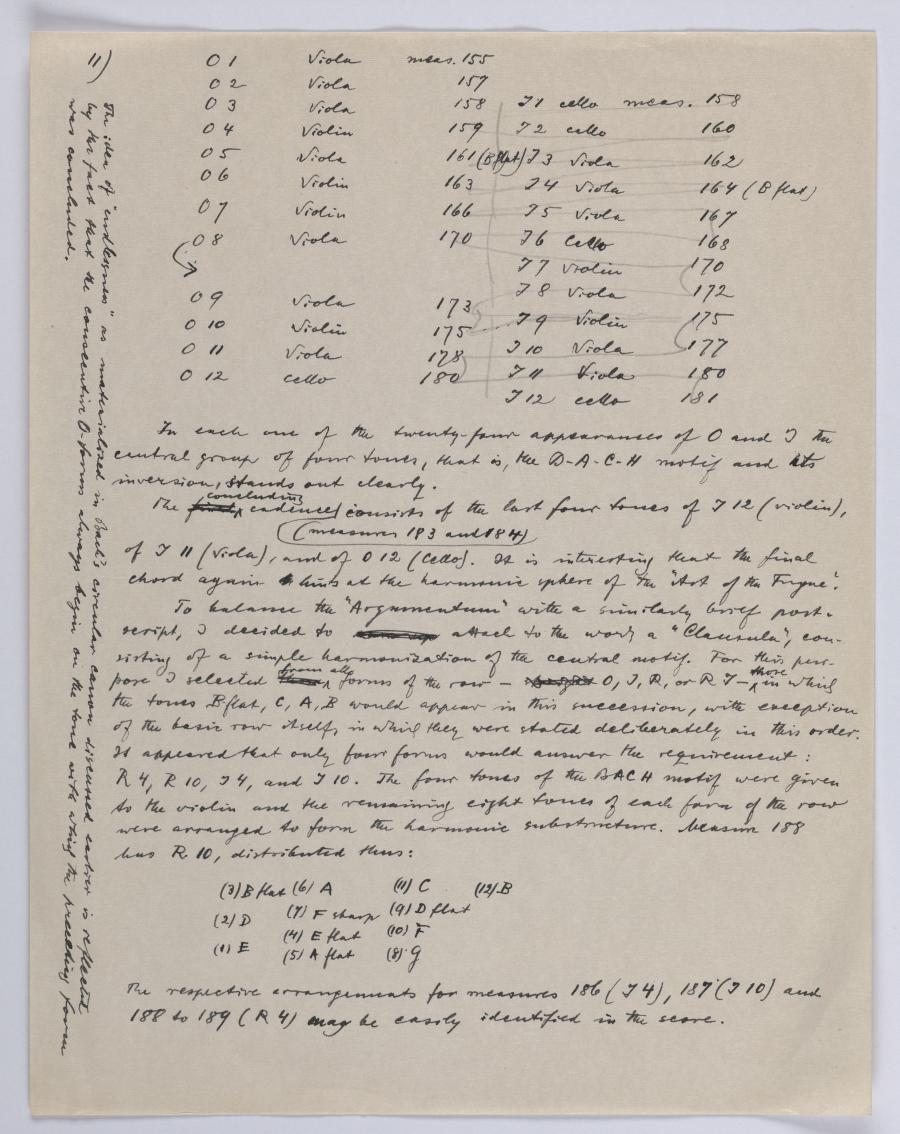 11)
O 1 Viola meas. 155
O 2 Viola 157
O 3 Viola 158 I 1 cello meas. 158
O 4 Violin 159 I 2 cello 160
O 5 Viola 161 (B flat) I 3 Viola 162
O 6 Violin 163 I 4 Viola 164 (B flat)
O 7 Violin 166 I 5 Viola 167
O 8 Viola 170 I 6 Cello 168
I 7 Violin 170
I 8 Viola 172
O 9 Viola 173
O 10 Violin 175 I 9 Violin 175
O 11 Viola 178 I 10 Viola 177
O 12 cello 180 I 11 Viola 180
I 12 cello 181
In each one of the twenty-four appearances of O and I the
central group of four tones, that is, the B-A-C-H motif and its
inversion, stands out clearly.
The concluding cadence consists of the last four tones of I 12 (violin),
(measures 183 and 184)
of I 11 (Viola), and of O 12 (Cello). It is interesting that the final
chord again hints at the harmonic sphere of the "Art of the Fugue".
To balance the "Argumentum" with a similarly brief post-
script, I decided to attach to the work a "Clausula", con-
sisting of a simple harmonization of the central motif. For this pur-
pose I selected from all forms of the row – O, I, R, or R I – those in which
the tones B flat, C, A, B would appear in this succession, with exception
of the basic row itself, in which they were stated deliberately in this order.
It appeared that only four forms would answer the requirement:
R 4, R 10, I 4, and I 10. The four tones of the BACH motif were given
to the violin and the remaining eight tones of each form of the row
were arranged to form the harmonic substructure. Measure 188
has R 10, distributed thus:
(3) B flat (6) A (11) C (12) B
(2) D (7) F sharp (9) D flat
(4) E flat (10) F
(1) E (5) A flat (8) G
The respective arrangements for measures 186 (I 4), 187 (I 10) and
188 to 189 (R 4) may be easily identified in the score.
The idea of "endlessness" as materialized in Bach's circular canon discussed earlier is reflected
by the fact that the consecutive O-forms always begin on the tone with which the preceding form
was concluded.